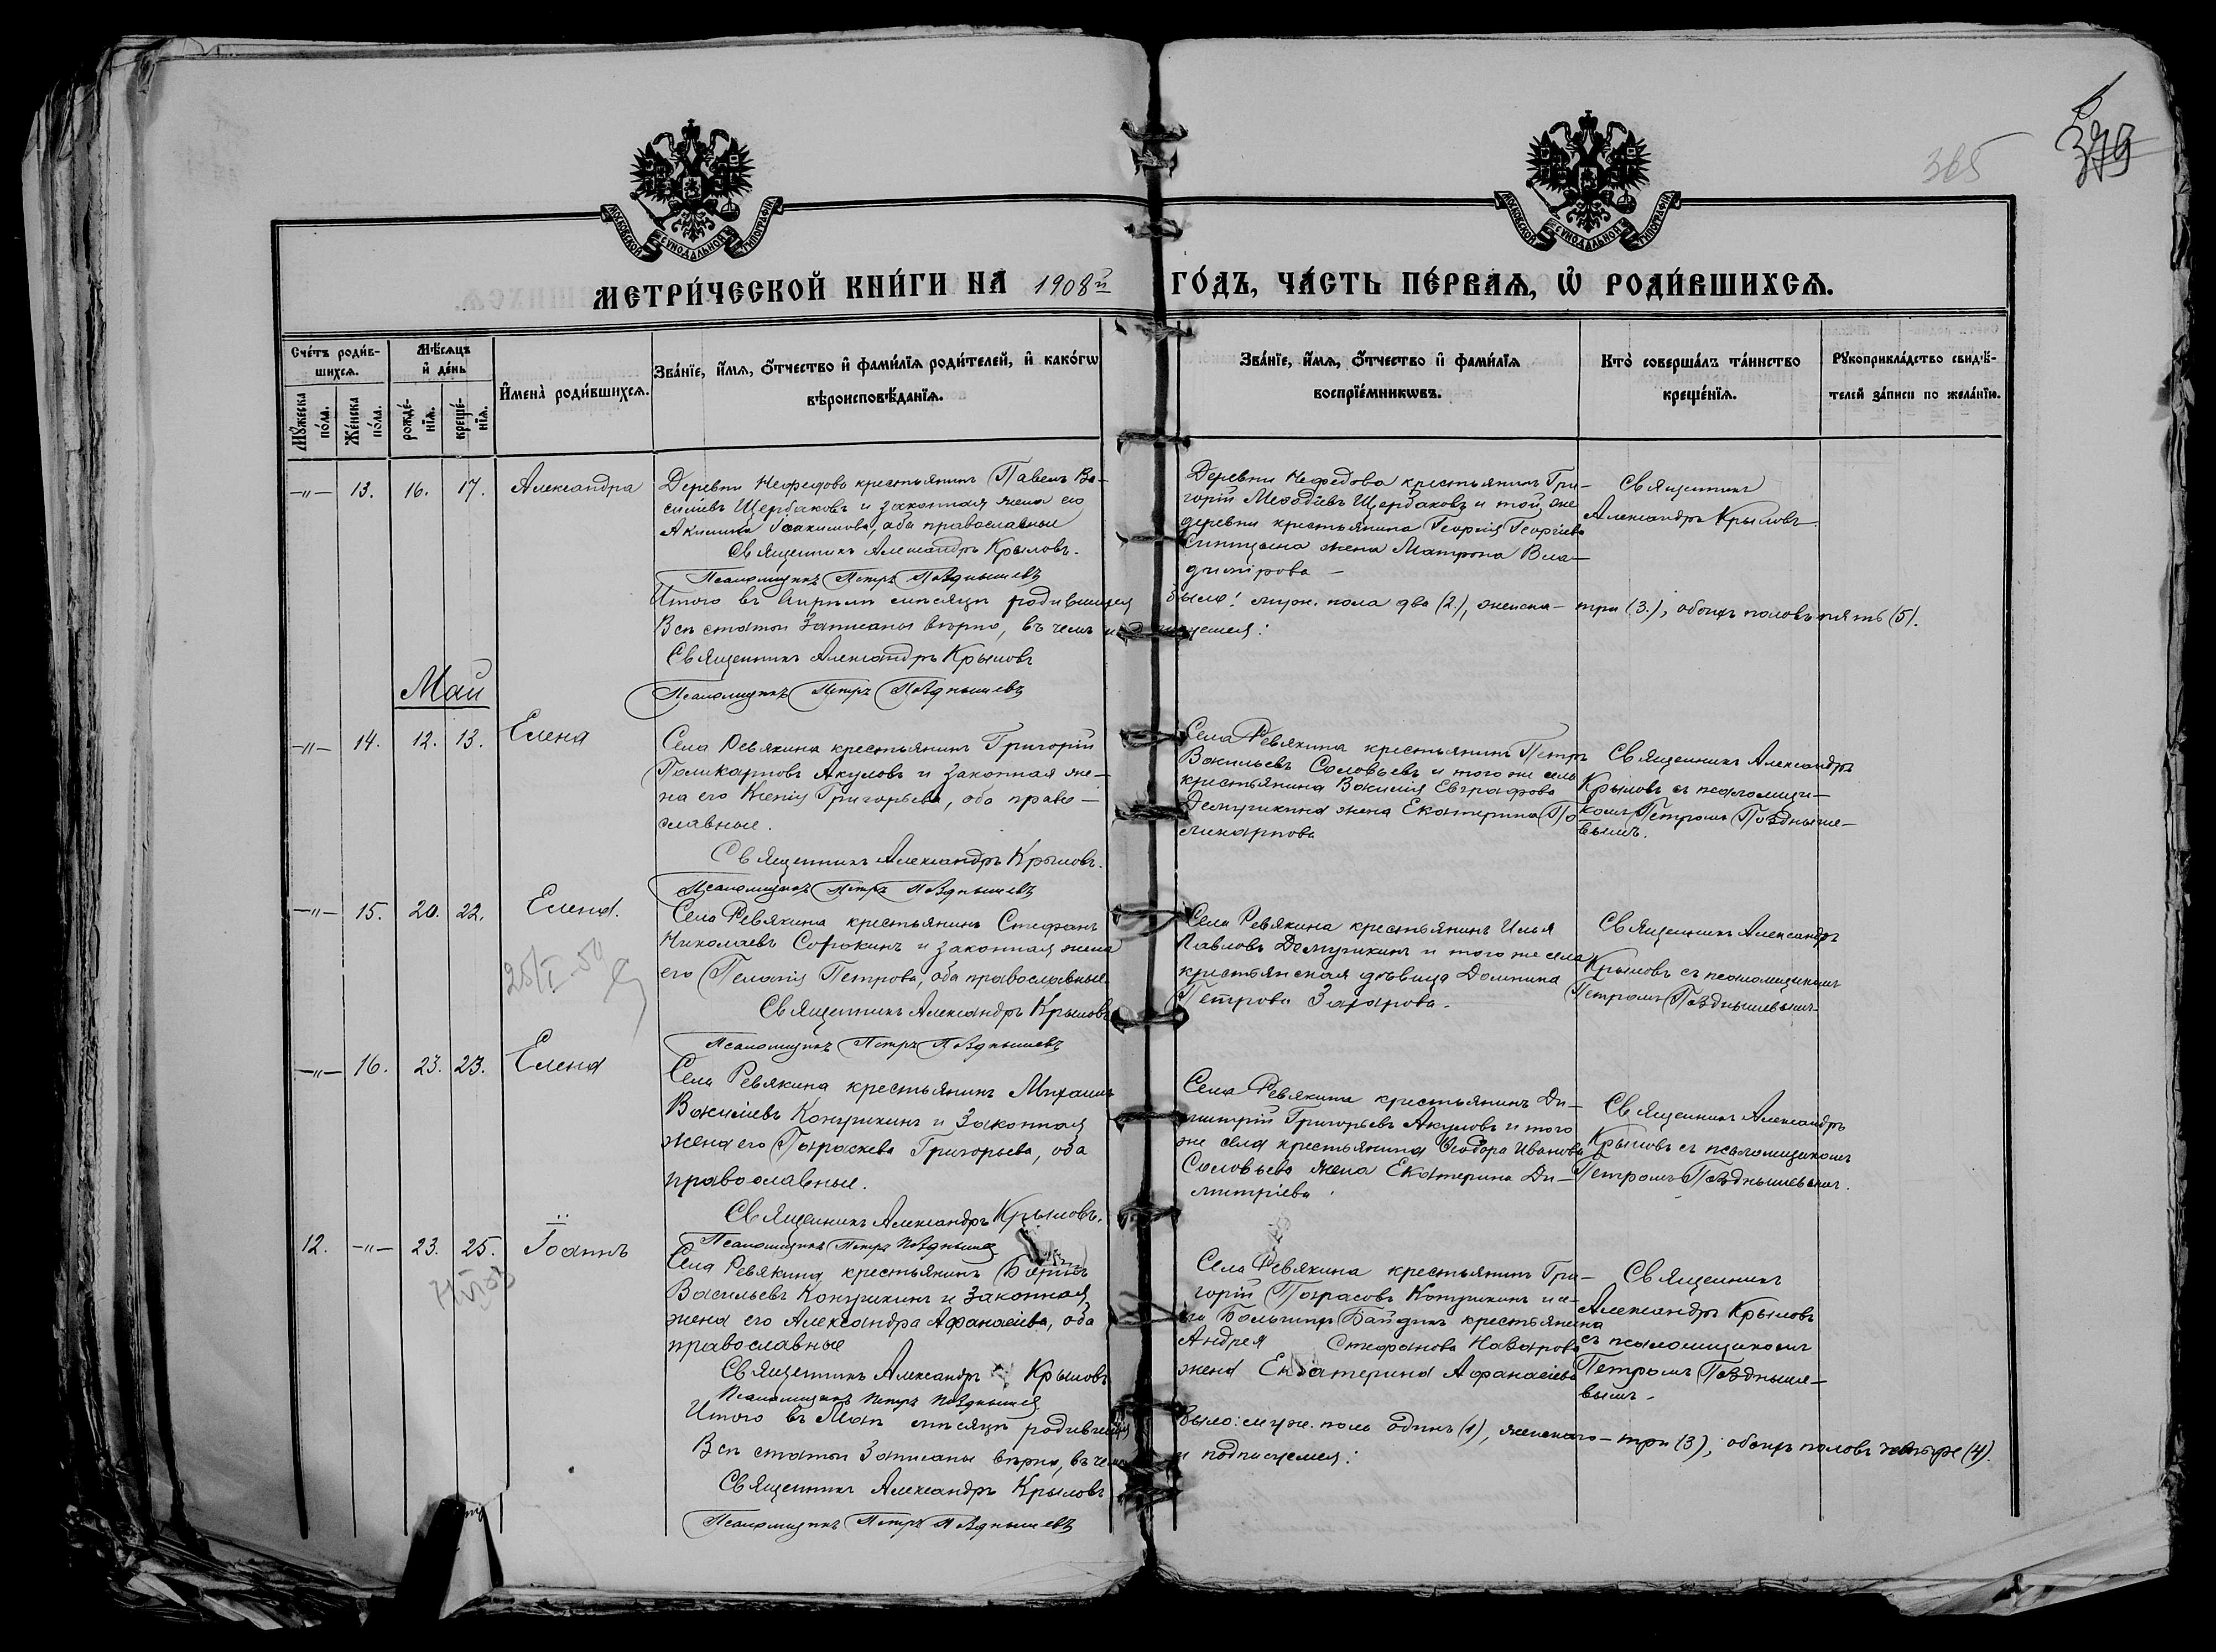 365
379
МОСКОВСКОЙ СѴНОДАЛЬНОЙ ТИПОГРАФІИ
МОСКОВСКОЙ СѴНОДАЛЬНОЙ ТИПОГРАФІИ
МЕТРИ́ЧЕСКОЙ КНИ́ГИ НА 1908й ГО́ДЪ, ЧА́СТЬ ПЕ́РВАѦ, Ѡ РОДИ́ВШИХСѦ.
Сче́тъ роди́в-
шихсѧ.
Мѣ́сѧцъ
и де́нь
Мꙋ́жеска
по́ла.
Же́нска
по́ла.
рожде́-
нїѧ.
креще́-
нїѧ.
Имена̀ роди́вшихсѧ.
Зва́нїе, и́мѧ, о́тчество и фами́лїѧ роди́телей, и како́гѡ
вѣроисповѣ́данїѧ.
Зва́нїе, и́мѧ, о́тчество и фами́лїѧ
воспрїе́мникѡвъ.
Кто̀ соверша́лъ та́инство
креще́нїѧ.
Рꙋкоприкла́дство свидѣ́-
телей за́писи по жела́нїю.
-"- 13. 16. 17. Александра
Деревни Нефедова крестьянинъ Павелъ Ва-
сильевъ Щербаковъ и законная жена его
Акилина Іоакимова, оба православные
Священникъ Александръ Крыловъ.
Псаломщикъ Петръ Позднышевъ
Деревни Нефедова крестьянинъ Гри-
горій Меѳодіевъ Щербаковъ и той же
деревни крестьянина Георгія Георгіева
Синицына жена Матрона Вла-
димірова -
Священникъ
Александръ Крыловъ.
Итого въ Апрѣлѣ мѣсяцѣ родившихся было: муж. пола два (2), женска - три (3.), обоихъ половъ пять (5).
Всѣ статьи записаны вѣрно, въ чемъ и подписуемся:
Священникъ Александръ Крыловъ
Псаломщикъ Петръ Позднышевъ
Май
-"- 14. 12. 13. Елена
Села Ревякина крестьянинъ Григорій
Поликарповъ Акуловъ и законная же-
на его Ксенія Григорьева, оба право-
славные.
Священникъ Александръ Крыловъ.
Псаломщикъ Петръ Позднышевъ
Села Ревякина крестьянинъ Петръ
Васильевъ Соловьевъ и того же села
крестьянина Василія Евграфова
Демушкина жена Екатерина По-
ликарпова
Священникъ Александръ
Крыловъ съ псаломщи-
комъ Петромъ Поздныше-
вымъ.
-"- 15. 20. 22. Елена.
Села Ревякина крестьянинъ Стефанъ
Николаевъ Сорокинъ и законная жена
его Пелагія Петрова, оба православные.
Священникъ Александръ Крыловъ
Псаломщикъ Петръ Позднышевъ
Села Ревякина крестьянинъ Илья
Павловъ Демушкинъ и того же села
крестьянская дѣвица Домника
Петрова Захарова.
Священникъ Александръ
Крыловъ съ псаломщикомъ
Петромъ Позднышевымъ
-"- 16. 23. 23. Елена
Села Ревякина крестьянинъ Михаилъ
Васильевъ Конушкинъ и законная
жена его Параскева Григорьева, оба
православные.
Священникъ Александръ Крыловъ.
Псаломщикъ Петръ Позднышев
Села Ревякина крестьянинъ Ди-
митрій Григорьевъ Акуловъ и того
же села крестьянина Ѳеодора Иванова
Соловьева жена Екатерина Ди-
митріева.
Священникъ Александръ
Крыловъ съ псаломщикомъ
Петромъ Позднышевымъ.
12. -"- 23. 25. Іоаннъ
Села Ревякина крестьянинъ Борисъ
Васильевъ Конушкинъ и законная
жена его Александра Афанасіева, оба
православные
Священникъ Александръ Крыловъ
Псаломщикъ Петръ Позднышев
Села Ревякина крестьянинъ Гри-
горій Тарасовъ Конушкинъ и се-
ла Большихъ Байдикъ крестьянина
Андрея Стефанова Назарова
жена Екатерина Афанасіева
Священникъ
Александръ Крыловъ
съ псаломщикомъ
Петромъ Поздныше-
вымъ.
Итого въ Маѣ мѣсяцѣ родившихся было: муж. пола одинъ (1), женскаго - три (3), обоихъ половъ четыре (4).
Всѣ статьи записаны вѣрно, въ чемъ и подписуемся:
Священникъ Александръ Крыловъ
Псаломщикъ Петръ Позднышевъ